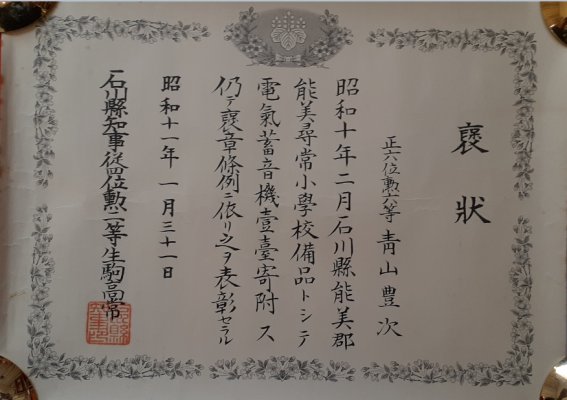 褒狀
正六位勲六等 青山豊次
昭和十年二月石川縣能美郡
能美尋常小學校備品トシテ
電氣蓄音機壹臺寄附ス
仍テ褒章條例ニ依リ之ヲ表彰セラル
昭和十一年一月三十一日
石川縣知事從四位勲二等生駒高常